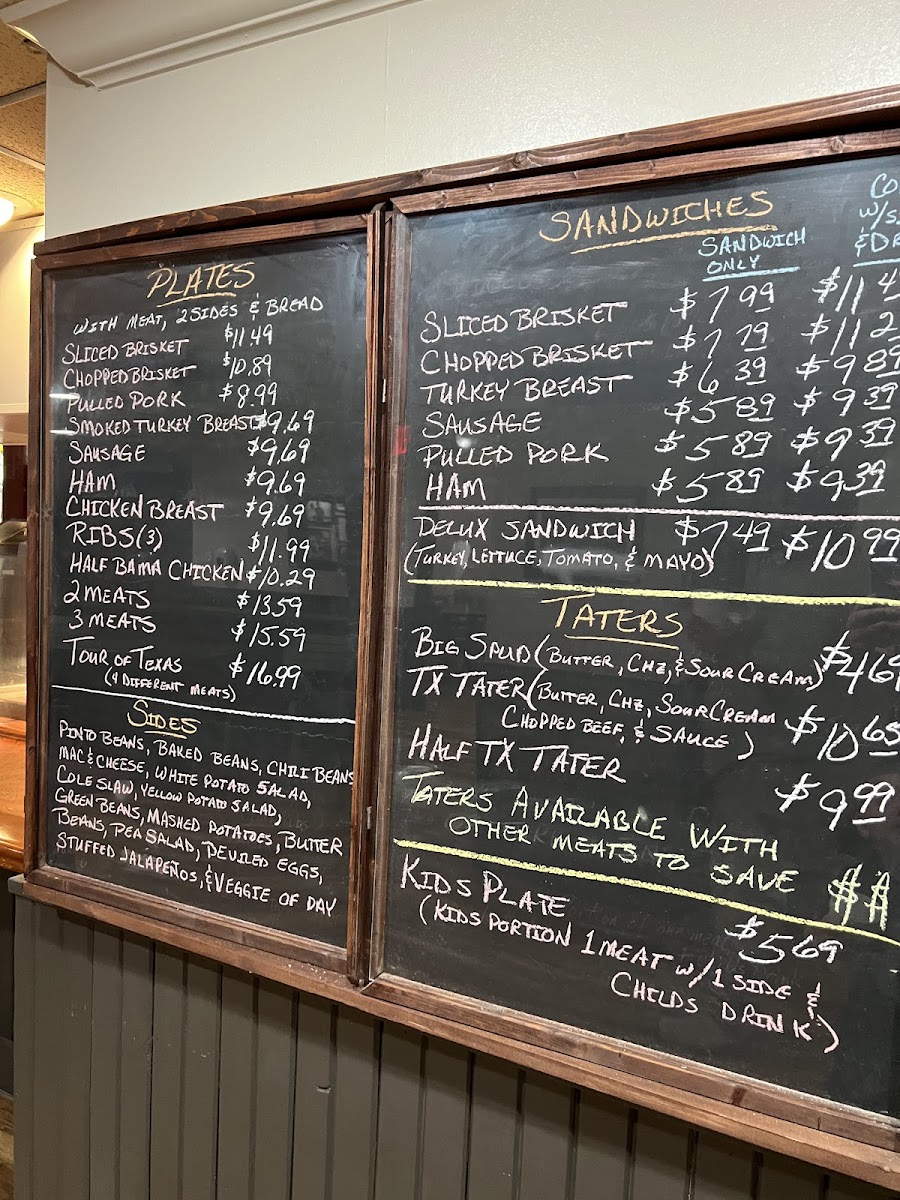 PLATES
WITH MEAT, 2 SIDES & BREAD
SLICED BRISKET $11.49
CHOPPED BRISKET $10.89
PULLED PORK $8.99
SMOKED TURKEY BREAST $9.69
SAUSAGE $9.69
HAM $9.69
CHICKEN BREAST $9.69
RIBS (3) $11.99
HALF BAMA CHICKEN $10.29
2 MEATS $13.59
3 MEATS $15.59
TOUR OF TEXAS $16.99
(4 DIFFERENT MEATS)
SIDES
PINTO BEANS, BAKED BEANS, CHILI BEANS
MAC & CHEESE, WHITE POTATO SALAD,
COLE SLAW, YELLOW POTATO SALAD,
GREEN BEANS, MASHED POTATOES, BUTTER
BEANS, PEA SALAD, DEVILED EGGS,
STUFFED JALAPEÑOS, & VEGGIE OF DAY
SANDWICHES
SANDWICH
ONLY
CO
W/S
& DR
SLICED BRISKET $7.99 $11.4
CHOPPED BRISKET $7.79 $11.2
TURKEY BREAST $6.39 $9.89
SAUSAGE $5.89 $9.39
PULLED PORK $5.89 $9.39
HAM $5.89 $9.39
DELUX SANDWICH $7.49 $10.99
(TURKEY, LETTUCE, TOMATO, & MAYO)
TATERS
BIG SPUD (BUTTER, CHZ, & SOUR CREAM) $4.69
TX TATER (BUTTER, CHZ, SOUR CREAM
CHOPPED BEEF, & SAUCE) $10.65
HALF TX TATER $9.99
TATERS AVAILABLE WITH
OTHER MEATS TO SAVE $$
KIDS PLATE $5.69
(KIDS PORTION 1 MEAT W/ 1 SIDE &
CHILDS DRINK)